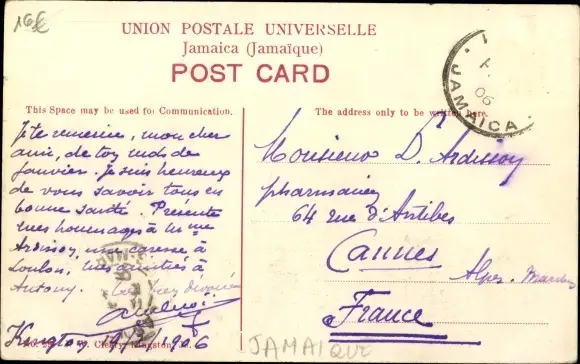 16€
UNION POSTALE UNIVERSELLE
Jamaica (Jamaïque)
POST CARD
JAMAICA
06
This Space may be used for Communication.
The address only to be written here.
Je te remercie, mon cher
ami, de tes mots de
Janvier. Je suis heureux
de vous savoir tous en
bonne santé. Présente
mes hommages à Mme
Ardisson, une caresse à
Loulon, mes amitiés à
Antony.
Kingston 1906
Monsieur D. Ardisson
pharmacien
64 rue d'Antibes
Cannes
Alpes-Maritimes
France
JAMAIQUE